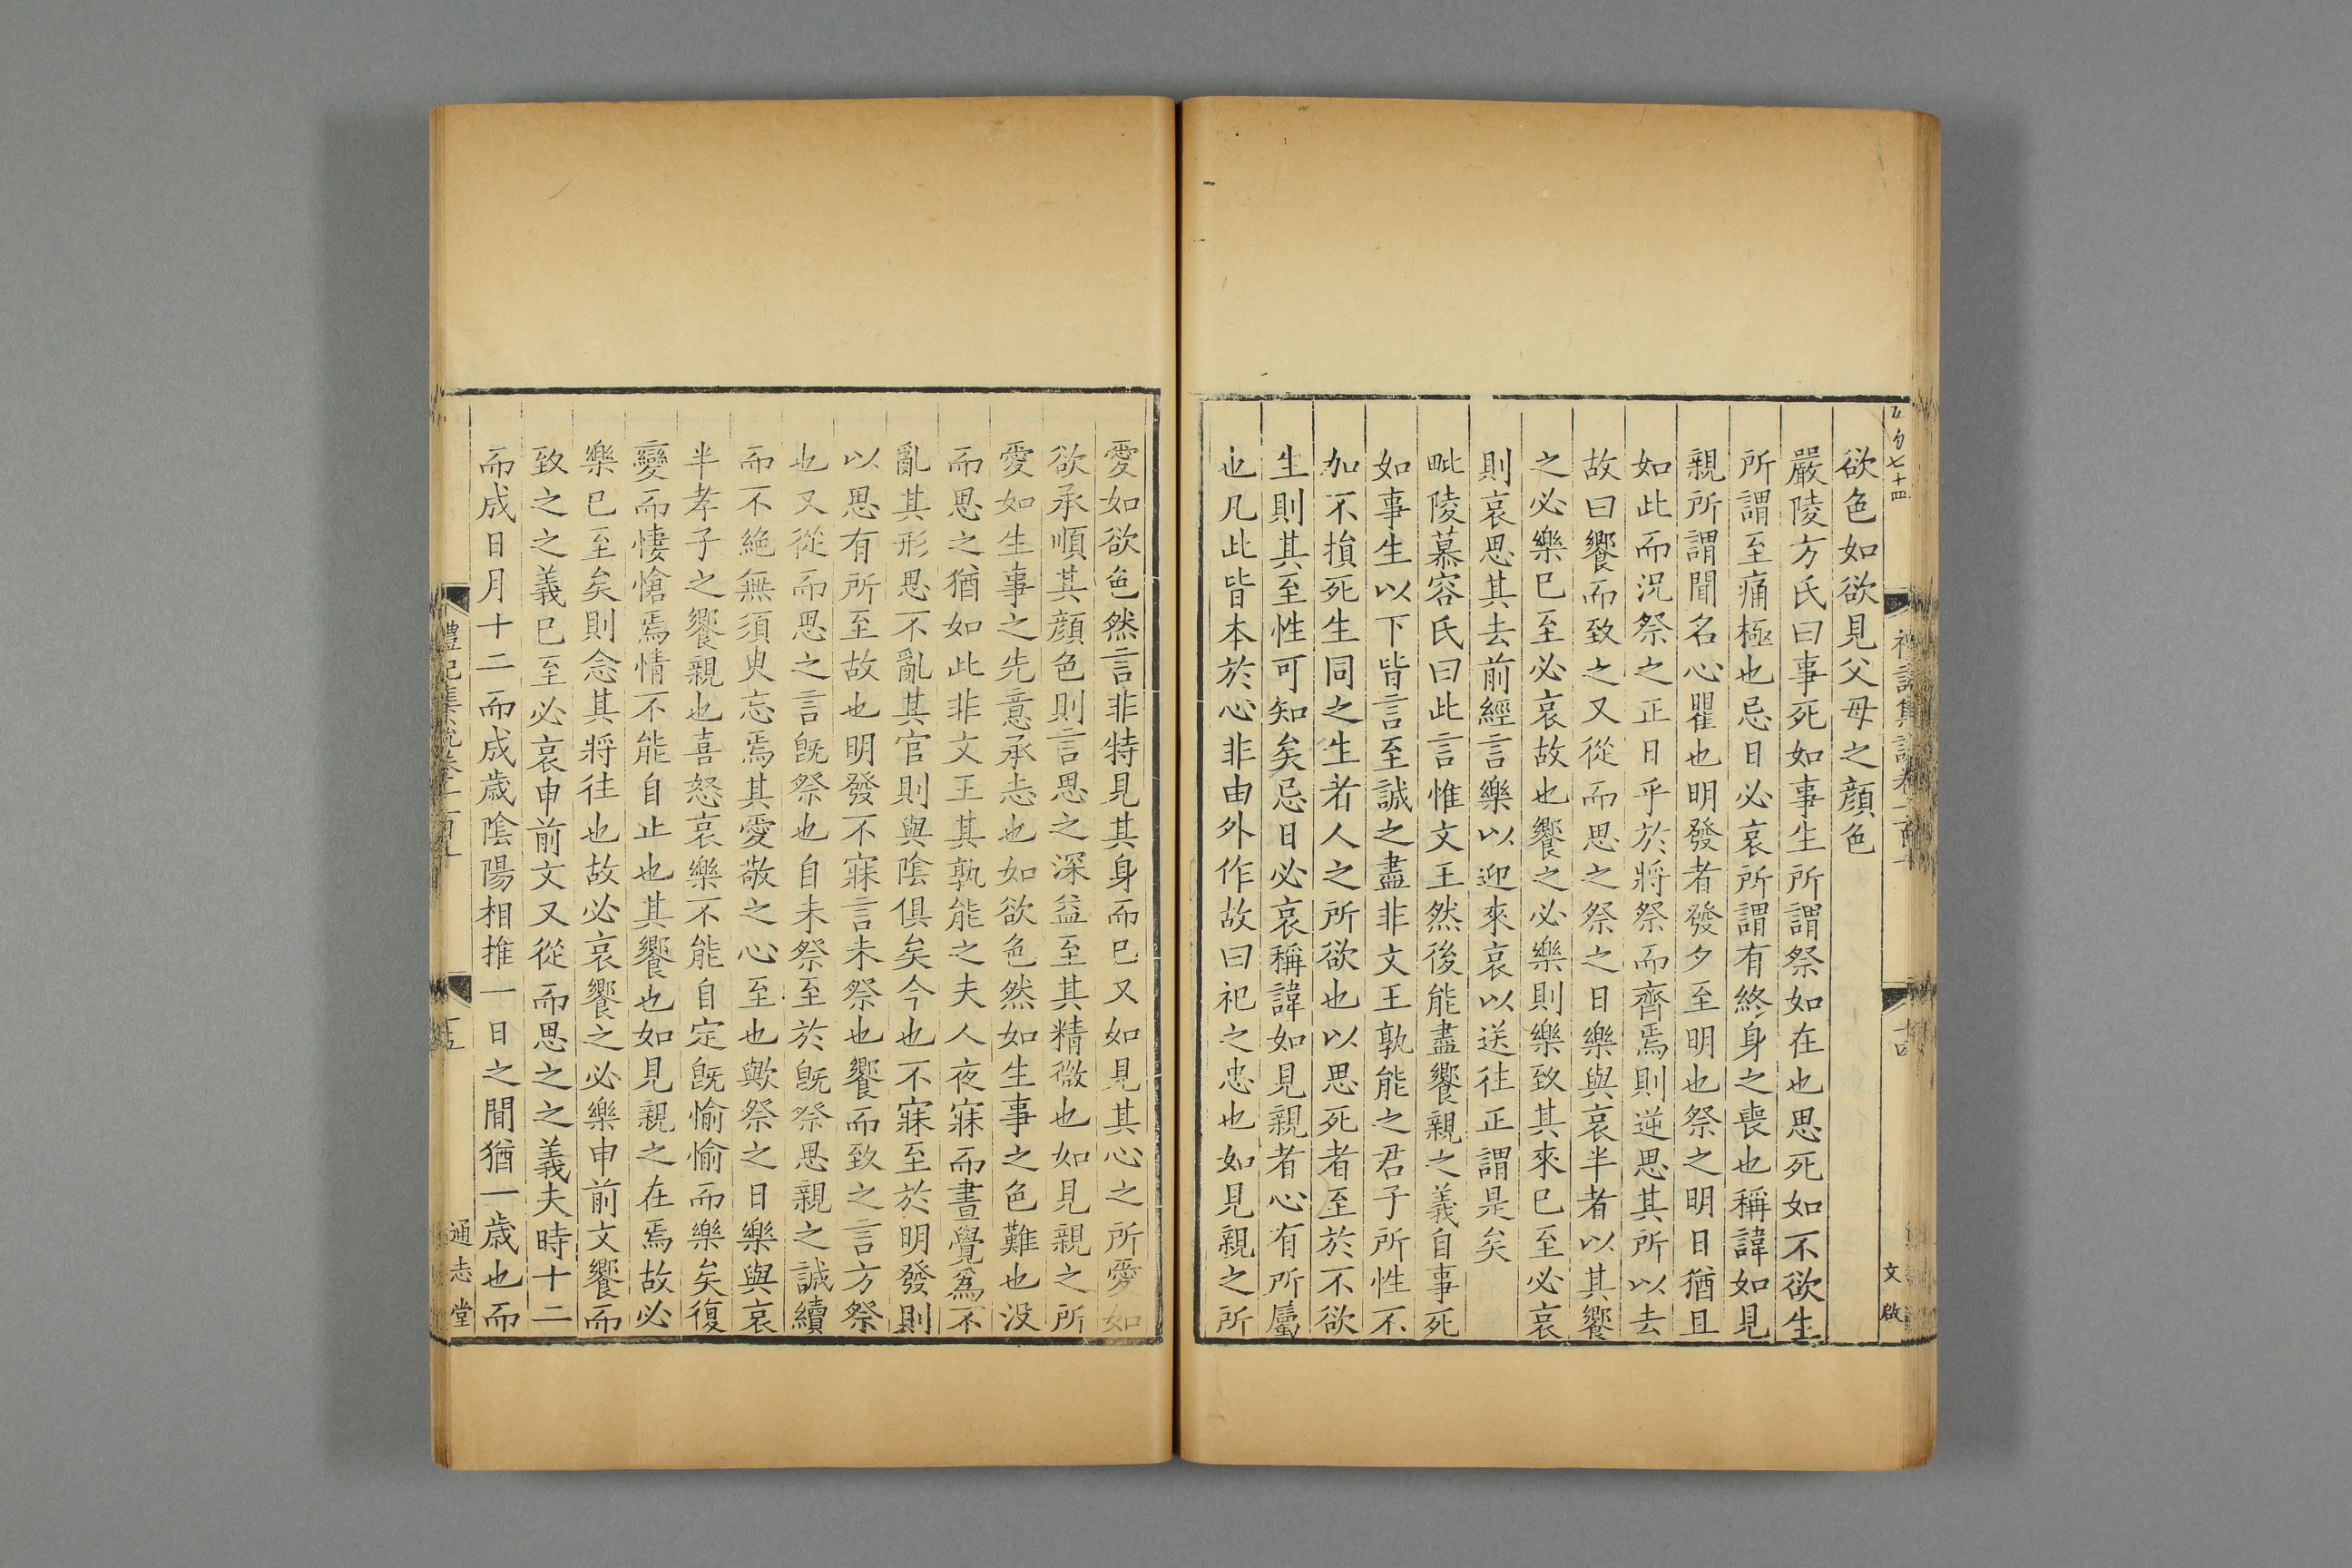 欲色如欲見父母之顔色
嚴陵方氏曰事死如事生所謂祭如在也思死如不欲生
所謂至痛極也忌日必哀所謂有終身之喪也稱諱如見
親所謂聞名心瞿也明發者發夕至明也祭之明日猶且
如此而況祭之正日乎於將祭而齊焉則逆思其所以去
故曰饗而致之又從而思之祭之日樂與哀半者以其饗
之必樂已至必哀故也饗之必樂則樂致其來已至必哀
則哀思其去前經言樂以迎來哀以送往正謂是矣
毗陵慕容氏曰此言惟文王然後能盡饗親之義自事死
如事生以下皆言至誠之盡非文王孰能之君子所性不
加不損死生同之生者人之所欲也以思死者至於不欲
生則其至性可知矣忌日必哀稱諱如見親者心有所屬
也凡此皆本於心非由外作故曰祀之忠也如見親之所
文啟
愛如欲色然言非特見其身而已又如見其心之所愛如
欲承順其顔色則言思之深益至其精微也如見親之所
愛如生事之先意承志也如欲色然如生事之色難也没
而思之猶如此非文王其孰能之夫人夜寐而晝覺爲不
亂其形思不亂其官則與陰俱矣今也不寐至於明發則
以思有所至故也明發不寐言未祭也饗而致之言方祭
也又從而思之言既祭也自未祭至於既祭思親之誠續
而不絶無須臾忘焉其愛敬之心至也歟祭之日樂與哀
半孝子之饗親也喜怒哀樂不能自定既愉愉而樂矣復
變而悽愴焉情不能自止也其饗也如見親之在焉故必
樂已至矣則念其將往也故必哀饗之必樂申前文饗而
致之之義已至必哀申前文又從而思之之義夫時十二
而成日月十二而成歲陰陽相推一日之間猶一歲也而
禮記集說卷一百十
通志堂